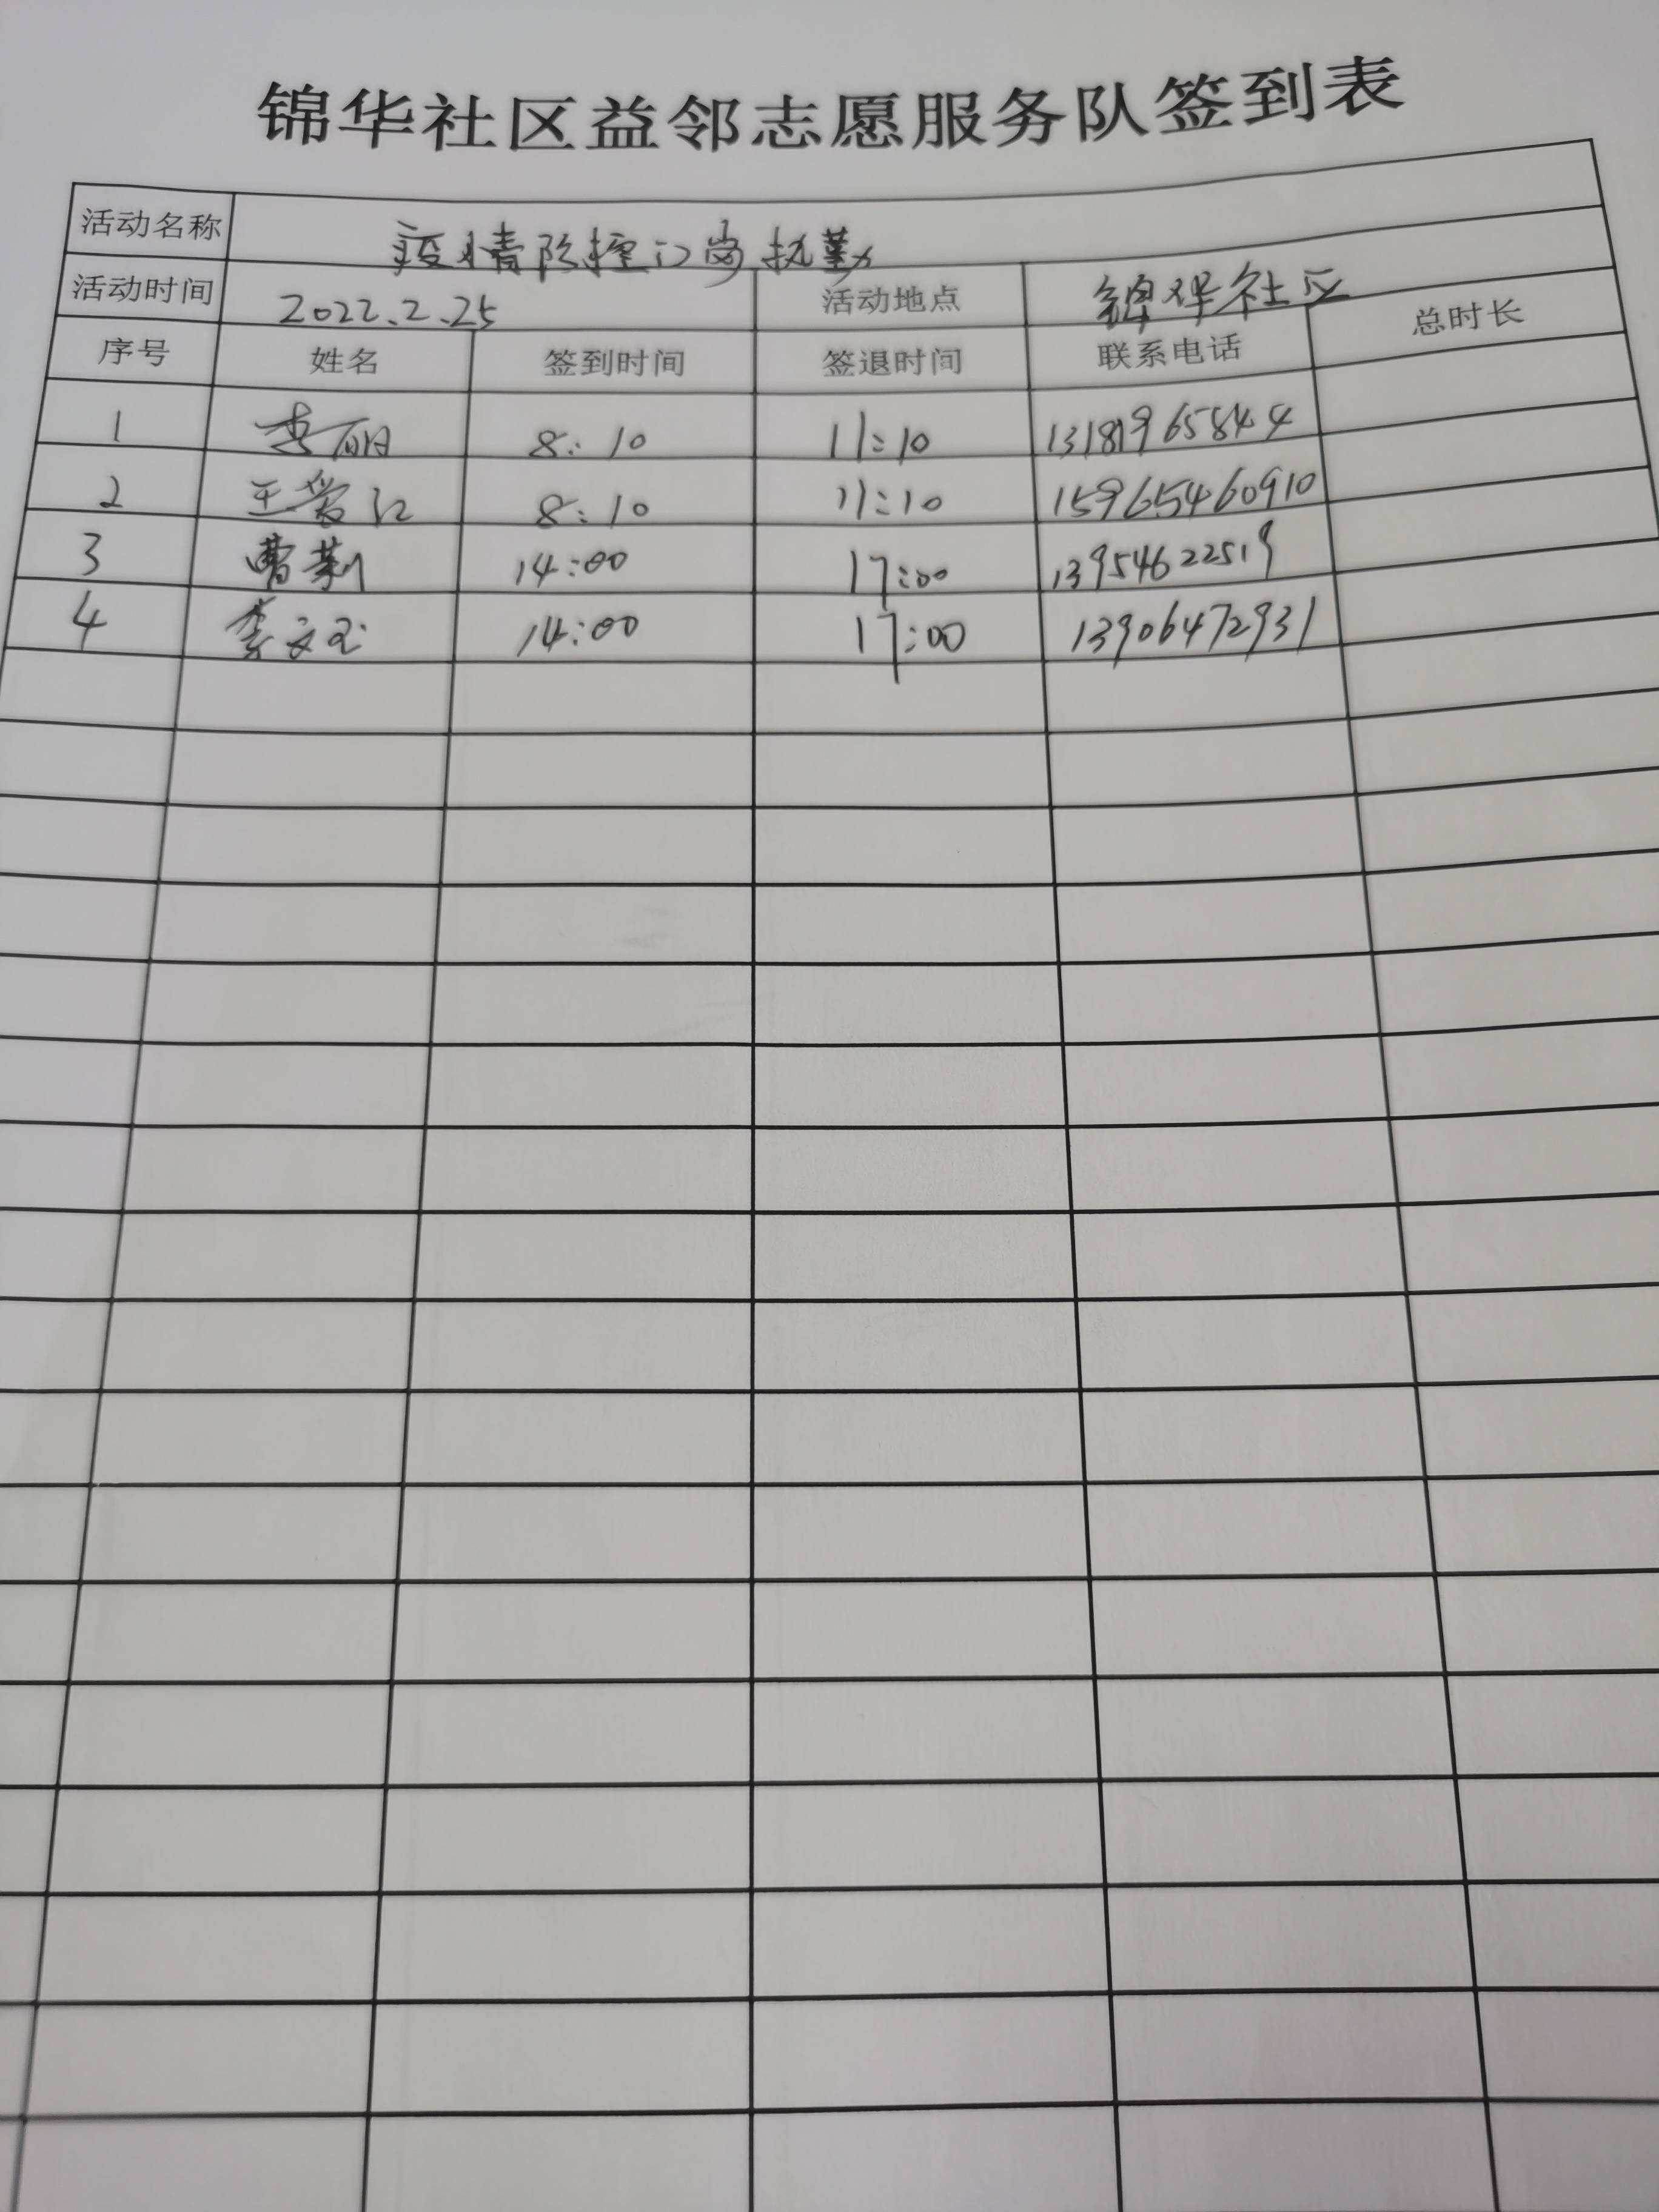 锦华社区益邻志愿服务队签到表
活动名称 疫情防控门岗执勤
活动时间 2022.2.25 活动地点 锦华社区
序号 姓名 签到时间 签退时间 联系电话 总时长
1 李丽 8:10 11:10 13181965844
2 王爱江 8:10 11:10 15965460910
3 曹莉 14:00 17:00 13954622519
4 李文玉 14:00 17:00 13906472931